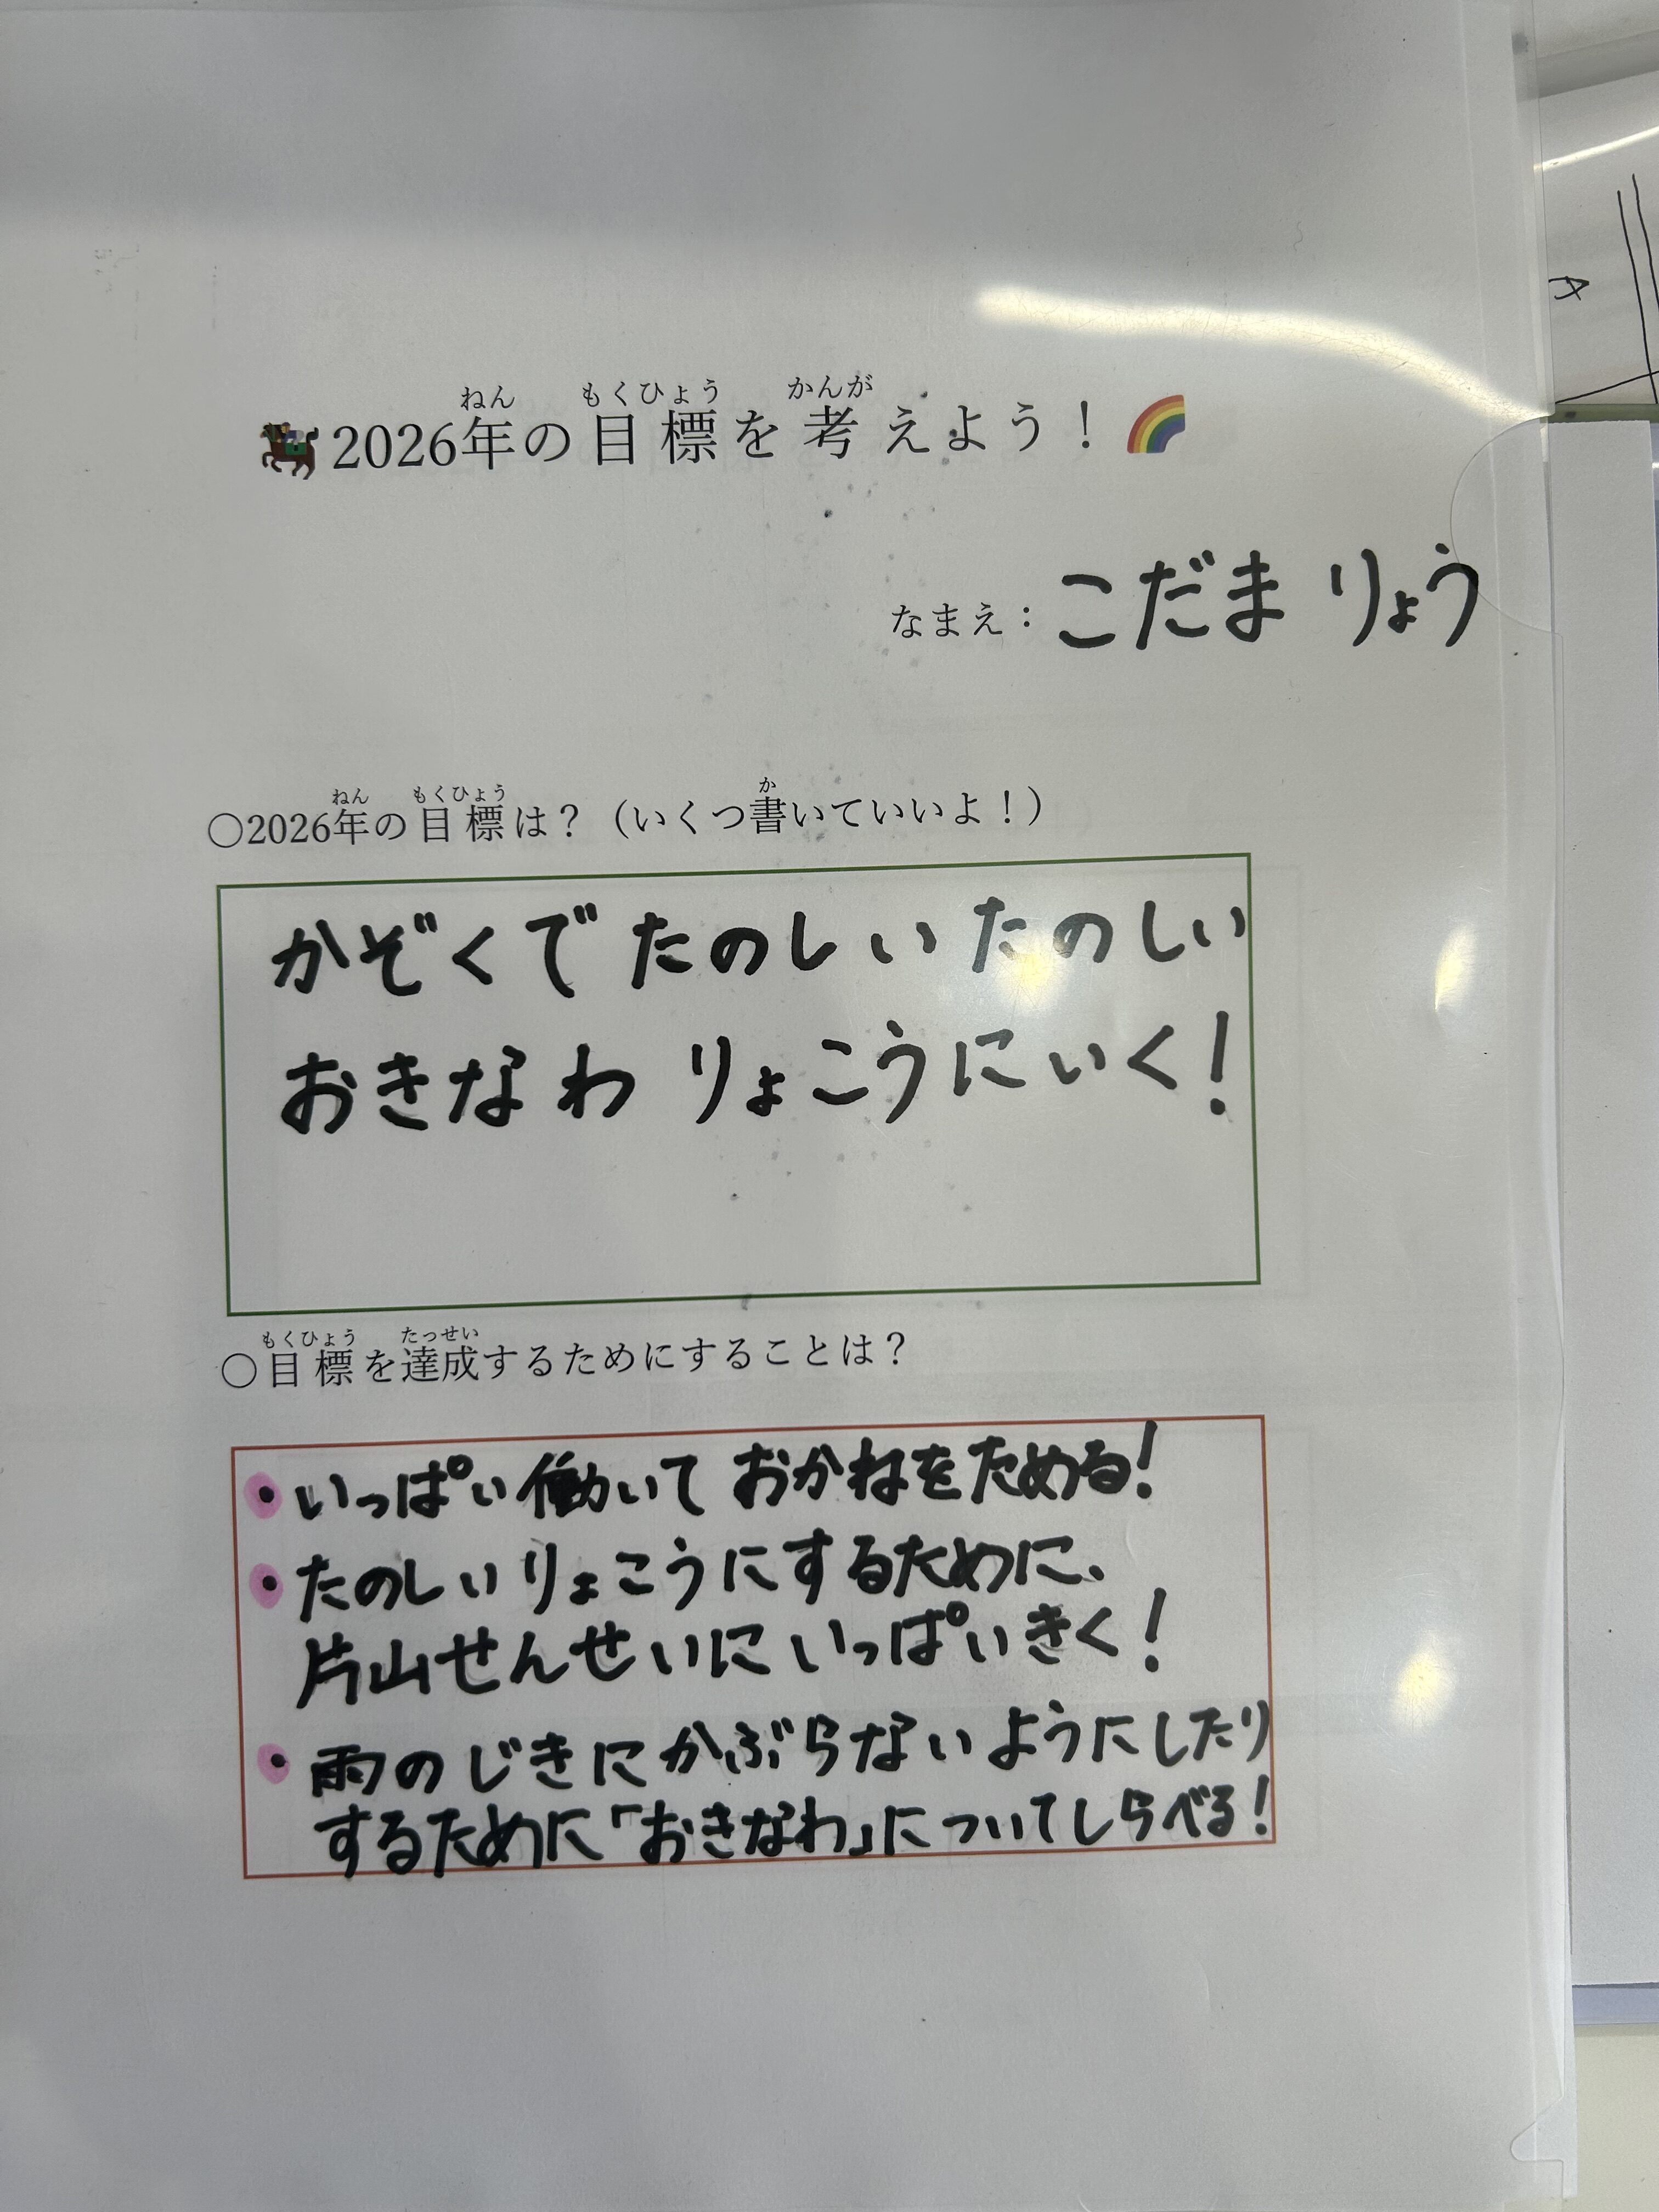 2026年の目標を考えよう！
なまえ：こだま りょう
○2026年の目標は？（いくつ書いていいよ！）
かぞくで たのしい たのしい
おきなわ りょこうにいく！
○目標を達成するためにすることは？
・いっぱい働いて おかねをためる！
・たのしいりょこうにするために、
片山せんせいにいっぱいきく！
・雨のじきにかぶらないようにしたり
するために「おきなわ」についてしらべる！